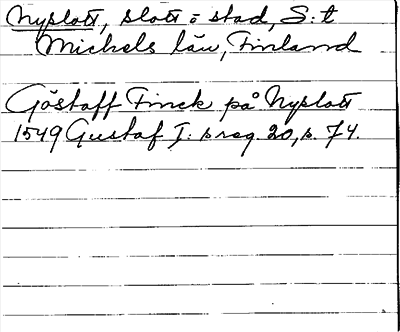 Nyslott, slott o stad, S:t
Michels län, Finland
Göstaff Finck på Nyslott
1549 Gustaf I: s reg. 20, s. 74.